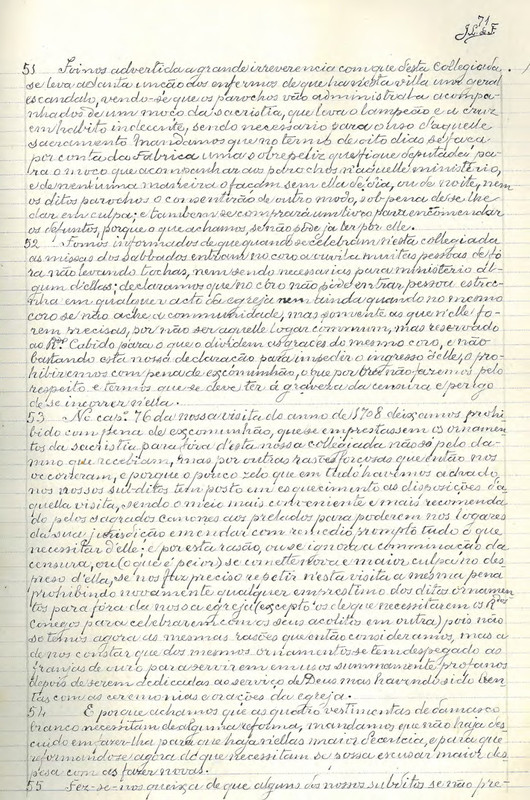 71
51 Foi nos advertida a grande irreverencia com que d'esta Collegiada
se leva a Santa uncão aos enfermos de que ha n'esta villa um geral
escandalo, vendo-se que os parochos vão administral-a acompa-
nhados de um moço da sacristia, que leva o lampeão e a cruz
em habito indecente, sendo necessario para o uso d'aquelle
sacramento. Mandamos que no termo de oito dias se faça
por conta da Fabrica uma sobrepeliz que fique deputada pa-
ra o moço que acompanhar aos parochos n'aquelle ministerio,
e de nenhuma maneira o façam sem ella de dia, ou de noite, nem
os ditos parochos o consentirão de outro modo, sob pena de se lhe
dar em culpa; e tambem se comprará um livro para encommendar
os defuntos, porque o que achamos, se não pode já ler por elle.
52 Fomos informados de que quando se celebram n'esta collegiada
as missas dos Sabbados entram no coro a ouvil-a muitas pessoas de fó-
ra não levando tochas, nem sendo necessarias para ministerio al-
gum d'ellas; declaramos que no côro não póde entrar pessoa estra-
nha em qualquer acto da egreja nem ainda quando no mesmo
coro se não ache a communidade, mas somente as que n'elle fo-
rem precisas, por não ser aquelle logar commum, mas reservado
ao Rdo. Cabido para o que o dividem as grades do mesmo coro, e não
bastando esta nossa declaração para impedir o ingresso d'elle, o pro-
hibiremos com pena de excomunhão, o que por ora não fazemos pelo
respeito e termos que se deve ter á graveza da censura e perigo
de se incorrer n'ella.
53 No cap. 76 da nossa visita do anno de 1708 deixamos prohi-
bido com pena de excomunhão, que se emprestassem os ornamen-
tos da sacristia para fóra d'esta nossa collegiada não só pelo da-
mno que recebiam, mas por outras rasões forçosas que então nos
occorreram, e porque o pouco zelo que em tudo havemos achado
nos nossos subditos tem posto em esquecimento as disposições d'a-
quella visita, sendo o meio mais conveniente e mais recomenda-
do pelos sagrados canones aos prelados para poderem nos logares
da sua jurisdição emendar com remedio prompto tudo o que
necessitar d'elle; e por esta rasão, ou se ignora a comminação da
censura, ou (o que é peior) se comette nova e maior culpa no des-
preso d'ella, se nos faz preciso repetir n'esta visita a mesma pena
prohibindo novamente qualquer emprestimo dos ditos ornamen-
tos para fóra da nossa egreja (excepto os de que necessitarem os Rdos
conegos para celebrarem com os seus acolitos em outra) pois não
só temos agora as mesmas rasões que então consideramos, mas a
de nos constar que dos mesmos ornamentos se tem despegado as
franjas de ouro para servirem em usos summamente profanos
depois de serem dedicadas ao serviço de Deus mas havendo sido ben-
tas, com as ceremonias e orações da egreja.
54 E porque achamos que as quatro vestimentas de damasco
branco necessitam de alguma reforma, mandamos que não haja des-
cuido em fazer-lha para que haja n'ellas maior decencia, e para que
reformando-se agora do que necessitam se possa excusar maior des-
pesa com as fazer novas.
55 Fez-se-nos queixa de que alguns dos nossos subditos se não pre-